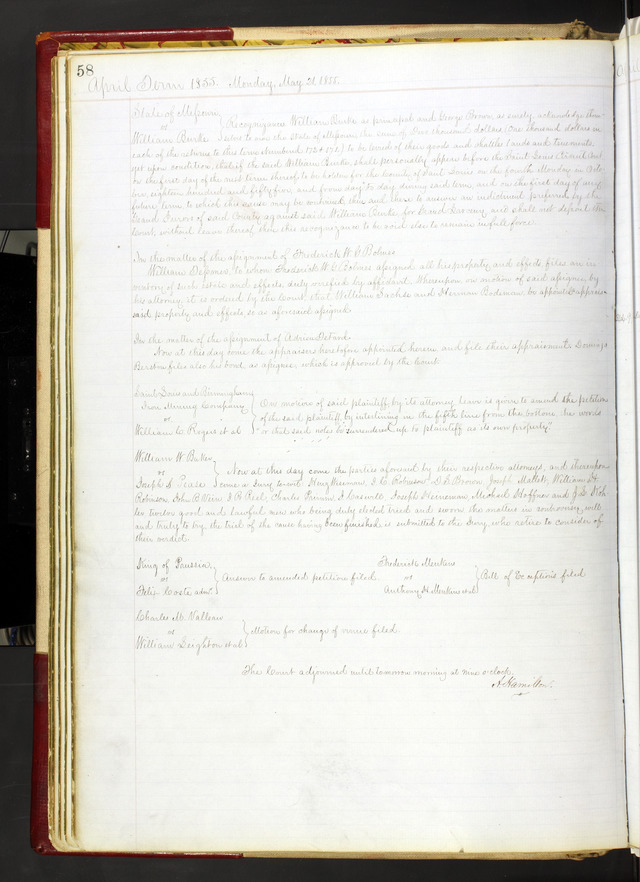 58
April Term 1855. Monday, May 21 1855.
State of Missouri
vs
William Burke
Recognizance William Burke as principal and George Brown, as surety, acknowledge them
selves to owe the State of Missouri the sum of One thousand dollars (One thousand dollars in
each of the returns to this term numbered 172 & 173,) to be levied of their goods and chattles lands and tenements.
yet upon condition, that if the said William Burke, shall personally appear before the Saint Louis Criminal Court
on the first day of the next term thereof to be holden for the County of Saint Louis on the fourth Monday in
eighteen hundred and fifty five and from day to day during said term, and on the first day of any
future term to which this cause may be continued then and there to answer an indictment preferred by the
Grand Jurors of said County against said William Burke for Grand Larceny and shall not depart the
Court without leave thereof, then this recognizance to be void else to remain in full force.
In the matter of the assignment of Frederick W. C. Bolmes
William Depones, to whom Frederick W. C Bolmes assigned all his property and effects, files an in
ventory of such estate and effects, duly verified by affidavit. Whereupon on motion of said assignee by
his attorney it is ordered by the Court, that William Sachse and Herman Bodeman, be appointed appraise
said property and effects so as aforesaid assigned.
In the matter of the assignment of Adrien Detrank
Now at this day come the appraisers heretofore appointed herein and file their appraisement,
files also his bond, as assignee, which is approved by the Court.
Saint Louis and Birmingham
Iron Mining Company
vs
William C Rogers et al
On motion of said plaintiff, by its attorney leave is given to amend the petition
of the said plaintiff, by interlining in the fifth line from the bottom the words
or that said notes be surrendered up to plaintiff as its own property"
William W. Baker
vs
Joseph S Pease
Now at this day come the parties aforesaid by their respective attorneys, and thereupon
come a Jury to-wit: Robinson, Brown, Joseph Mallett, William H.
Robinson, John B Peel, Charles I. Caswell, Joseph Heineman, Michael Hoffner and
twelve good and lawful men who being duly elected tried and sworn the matters in controversy well
and truly to try, the trial of the cause having been finished is submitted to the Jury, who retire to consider of
their verdict.
King of Prussia
vs
Felix Coste admr
Answer to amended petition filed
Frederick Menkens
vs
Anthony H Menkens et al
Bill of Exceptions filed
Charles M. Valleau
vs
William Leighton et al
Motion for change of venue filed.
The Court adjourned until tomorrow morning at nine o'clock.
A Hamilton